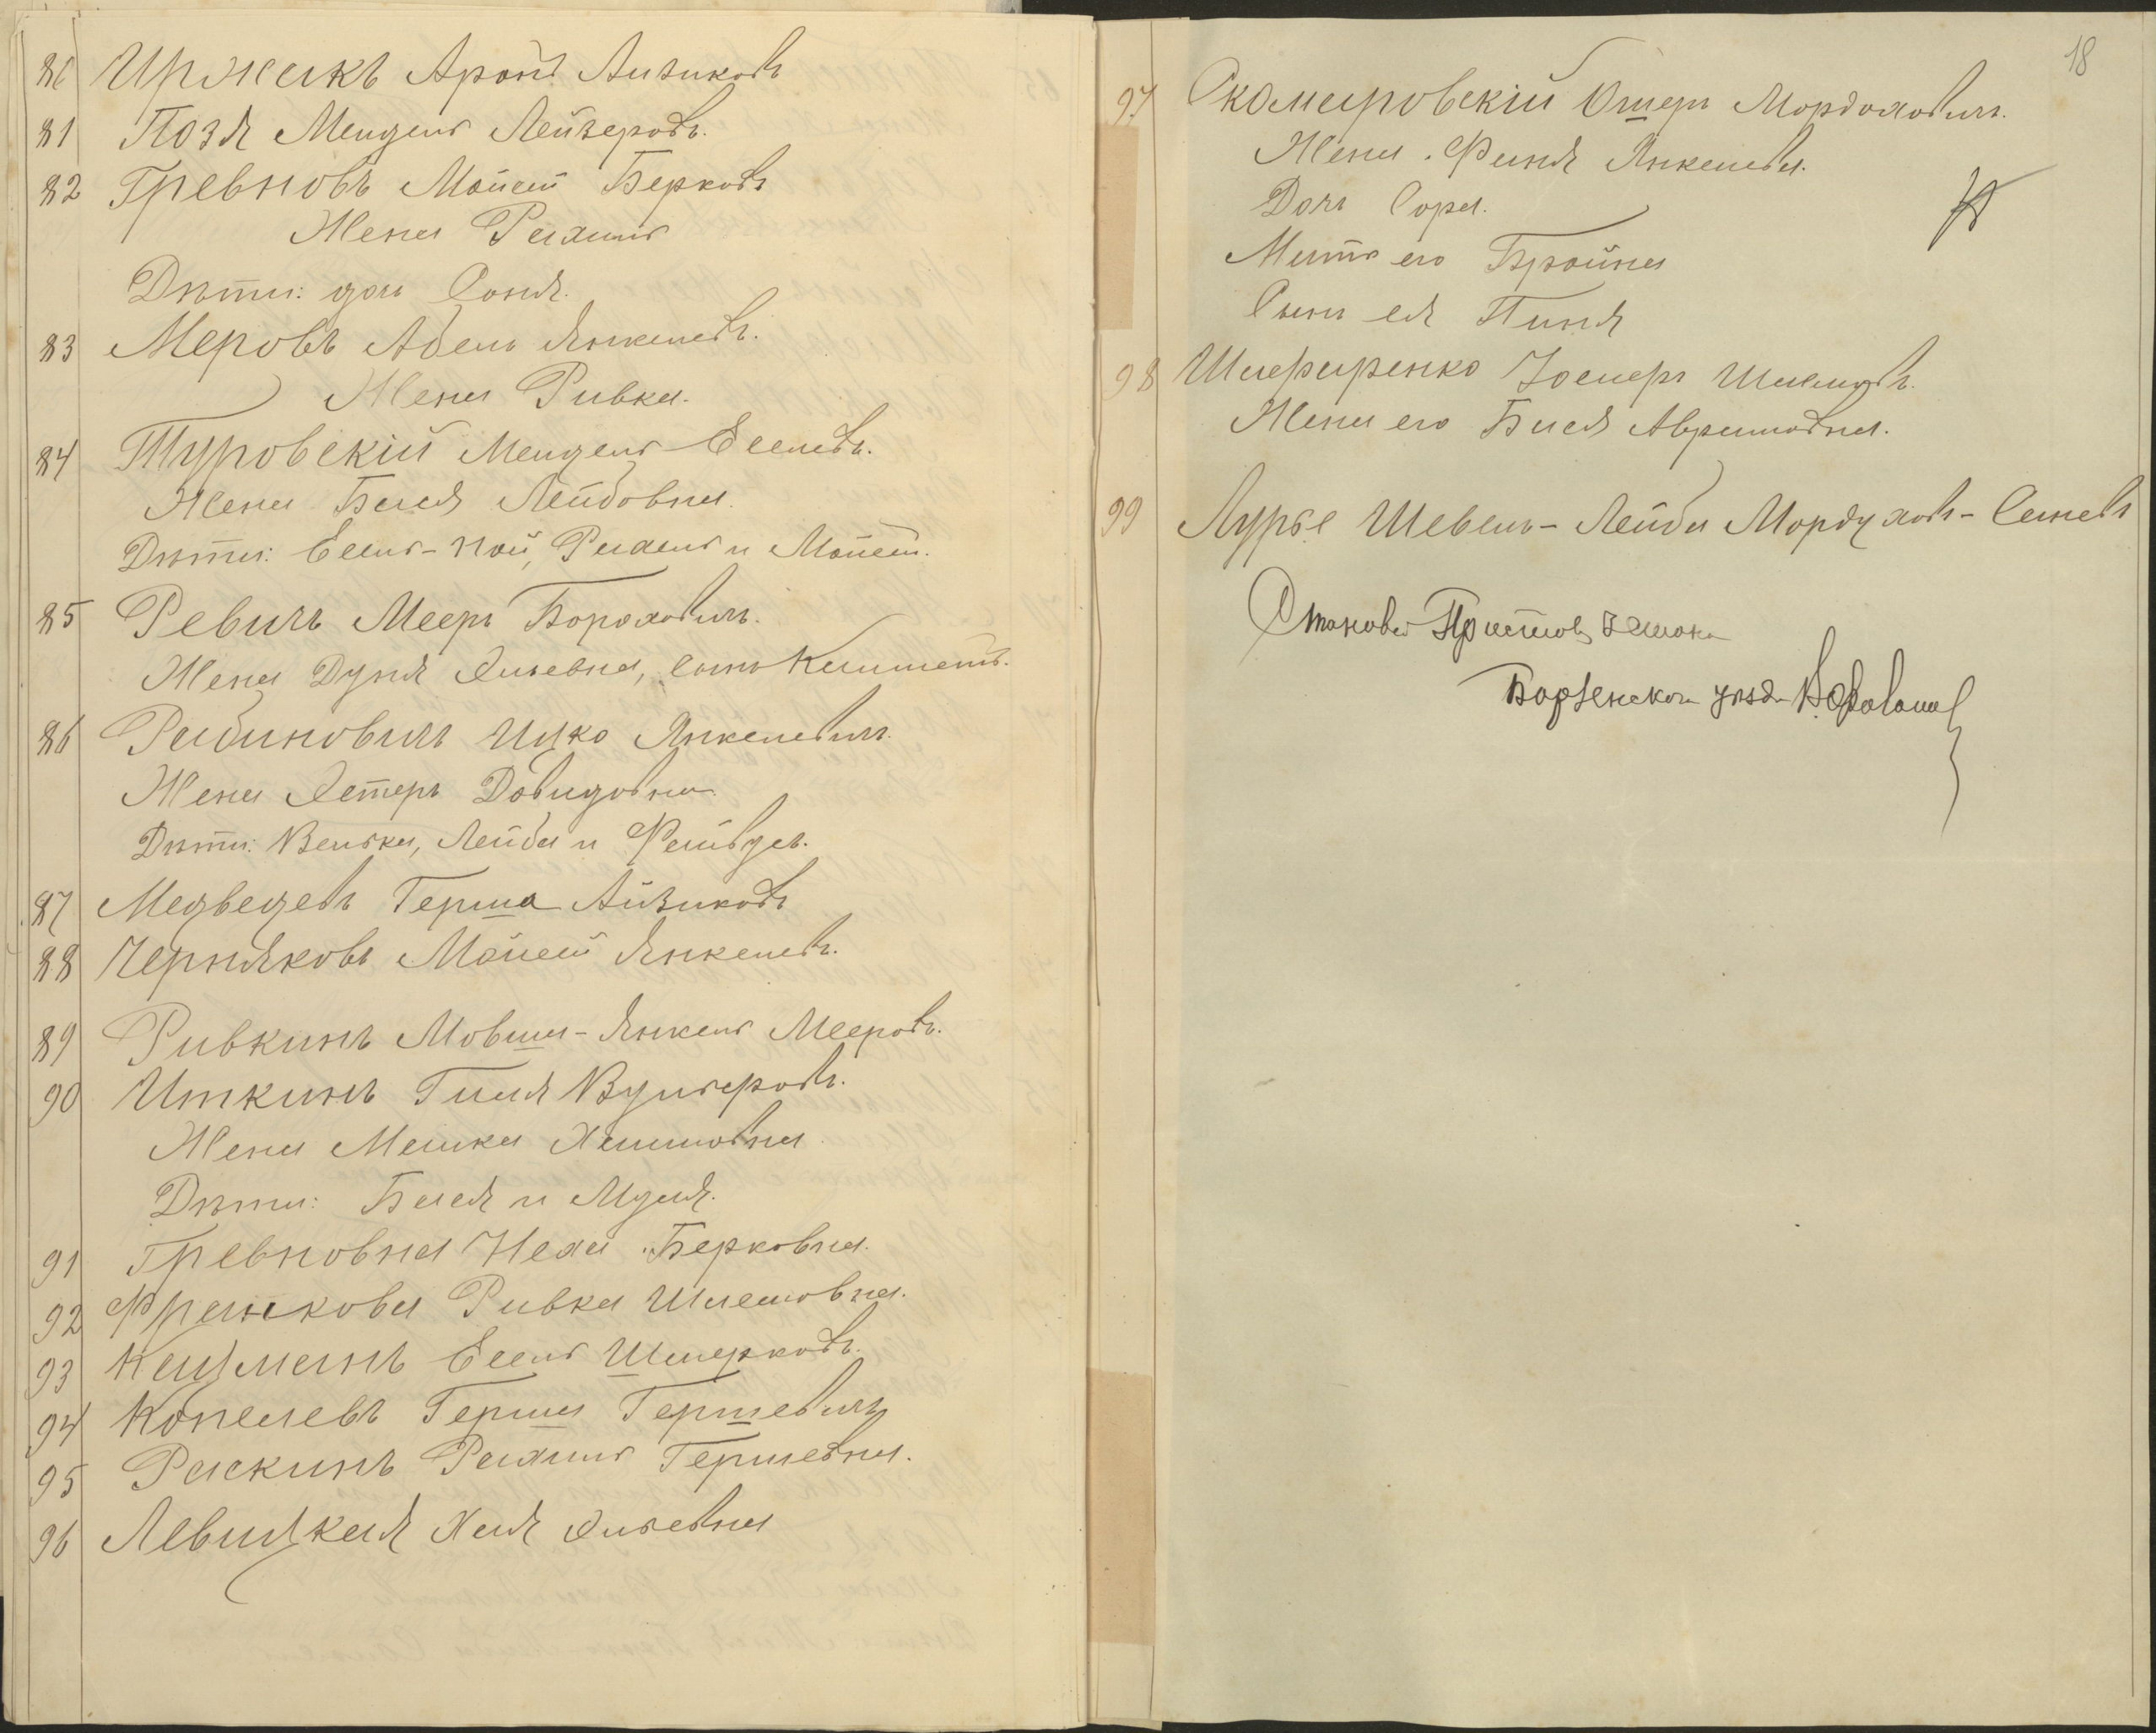 80 Иржакъ Аронъ Аизиковъ
81 Позя Мендель Лейзеровъ.
82 Гревновъ Мойсей Берковъ
Жена Рахиль
Дѣти: дочь Соня.
83 Меровъ Абель Янкелевъ.
Жена Ривка.
84 Туровскій Мендель Еселевъ.
Жена Бася Лейбовна.
Дѣти: Есель-Ной, Рахиль и Мойсей.
85 Ревичъ Мееръ Бороховичъ.
Жена Дуня Эльевна, сынъ
86 Рабиновичъ Ицко Янкелевичъ.
Жена Эстеръ Довидовна.
Дѣти: Велька, Лейба и
87 Медведевъ Герша Айзиковъ
88 Черняковъ Мойсей Янкелевъ.
89 Ривкинъ Мовша-Янкель Мееровъ.
90 Иткинъ Гиля Вульеровъ.
Жена Машка Хаимовна
Дѣти: Бася и
91 Гревновна Неха Берковна.
92 Франкова Ривка Шлемовна.
93 Кацманъ Есель Шмерковъ.
94 Копелевъ Герша Гершевичъ
95 Раскинъ Рахиль Гершевна.
96 Левицкая Хая Эльевна
18
97 Скомаровскій Ошеръ Мордоховичъ.
Жена Фаня Янкелевна.
Дочь Сора.
Мать его Бройна
Сынъ ея Пиня
98 Шаференко Іосифъ
Жена его Бася Аврамовна.
99 Лурье Шевель-Лейба Мордуховъ-
Становой Приставъ 3 стана
Борзенскаго уѣзда